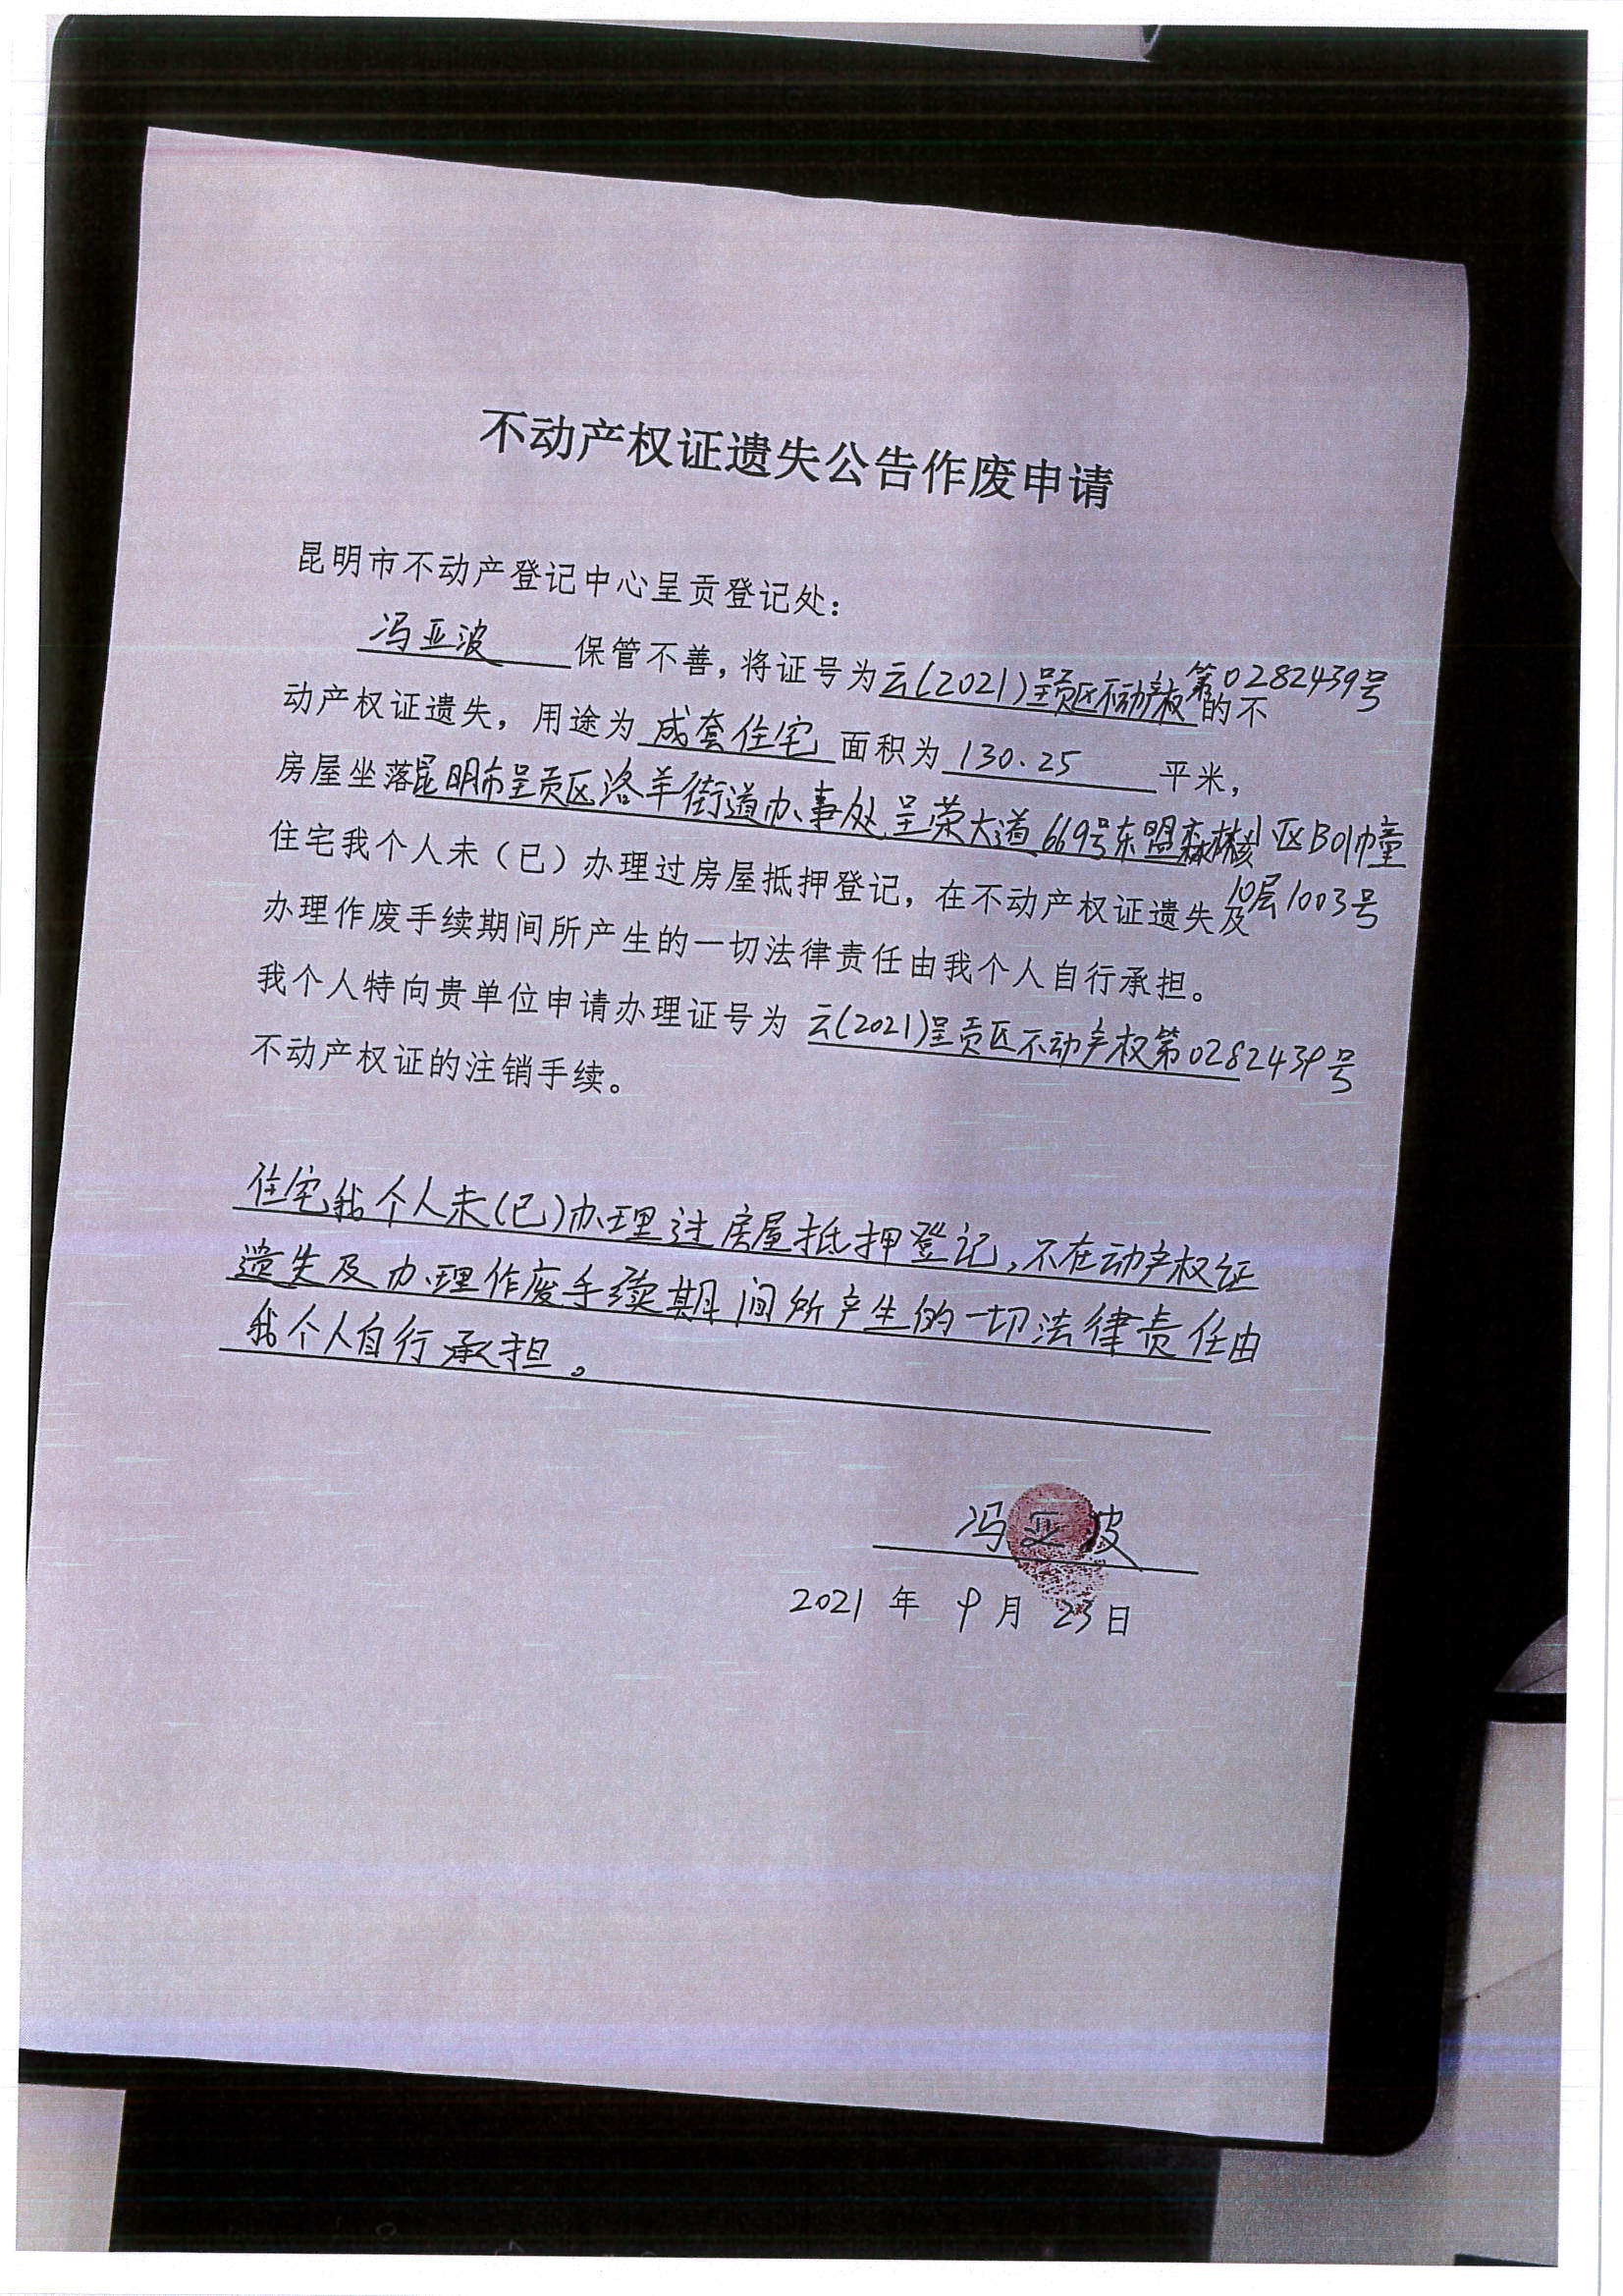 不动产权证遗失公告作废申请
昆明市不动产登记中心呈贡登记处：
冯亚波 保管不善，将证号为云(2021)呈贡区不动产权第0282439号的不
动产权证遗失，用途为 成套住宅 面积为 130.25 平米，
房屋坐落昆明市呈贡区洛羊街道办事处呈荣大道669号东盟森林小区B01幢10层1003号
住宅我个人未（已）办理过房屋抵押登记，在不动产权证遗失及
办理作废手续期间所产生的一切法律责任由我个人自行承担。
我个人特向贵单位申请办理证号为 云(2021)呈贡区不动产权第0282439号
不动产权证的注销手续。
住宅我个人未(已)办理过房屋抵押登记，不在动产权证
遗失及办理作废手续期间所产生的一切法律责任由
我个人自行承担。
冯亚波
2021 年 9 月 23 日